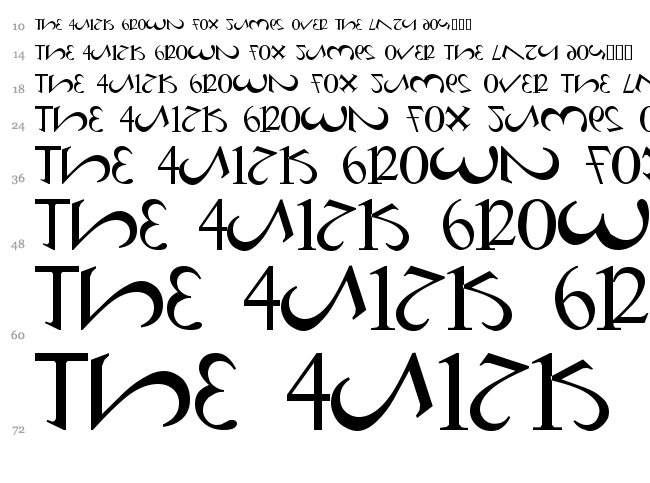 10 THE QUICK BROWN FOX JUMPS OVER THE LAZY DOG
14 THE QUICK BROWN FOX JUMPS OVER THE LAZY DOG
18 THE QUICK BROWN FOX JUMPS OVER THE LA
24 THE QUICK BROWN FOX JUMPS O
36 THE QUICK BROWN FO
48 THE QUICK BROW
60 THE QUICK BR
72 THE QUICK